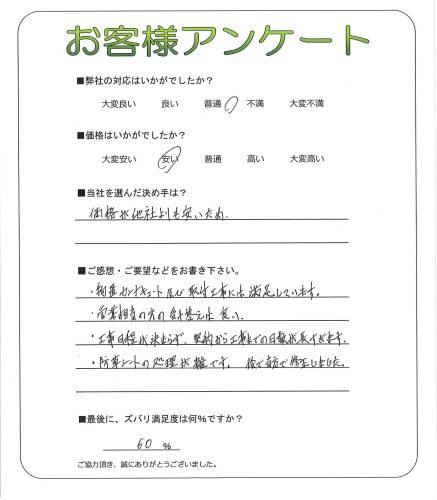 お客様アンケート
■弊社の対応はいかがでしたか？
大変良い　良い　普通　不満　大変不満
■価格はいかがでしたか？
大変安い　安い　普通　高い　大変高い
■当社を選んだ決め手は？
価格が他社よりも安いため.
■ご感想・ご要望などをお書き下さい。
・蓄エコキュート及び取付工事には満足しています。
・営業担当の方の は良い.
・工事日程が決まらず、契約から工事までの日数が長すぎます.
・防草シートの処理が雑です。後で当方で修正しました。
■最後に、ズバリ満足度は何%ですか？
60 %
ご協力頂き、誠にありがとうございました。